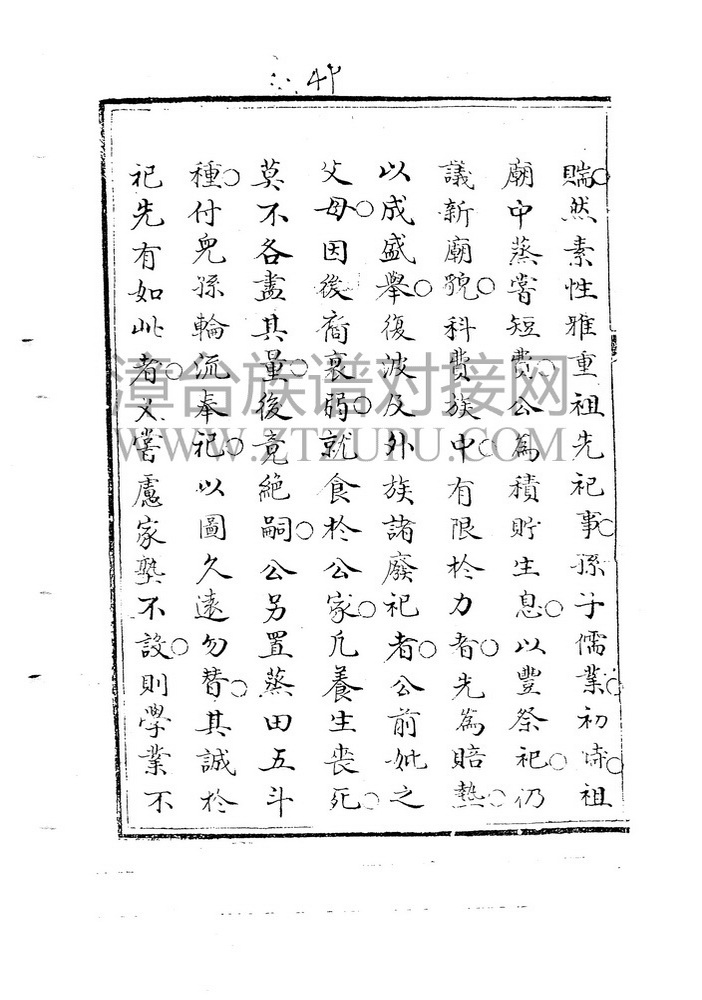 貒然素性雅重祖先祀事○孫子儒業○初時○祖
廟中蒸嘗短費○公為積貯生息○以豐祭祀○仍
議新廟貌○科費族中○有限於力者○先為賠熱○
以成盛舉○復波及外族諸廢祀者○公前妣之
父母○因後裔衰弱○就食於公家○凡養生喪死○
莫不各盡其量○後竟絕嗣○公另置蒸田五斗
種○付兒孫輪流奉祀○以圖久遠勿替○其誠於
祀先有如此者○又嘗慮家塾不設○則學業不
漳台族谱对接网
WWW.ZTZUPU.COM